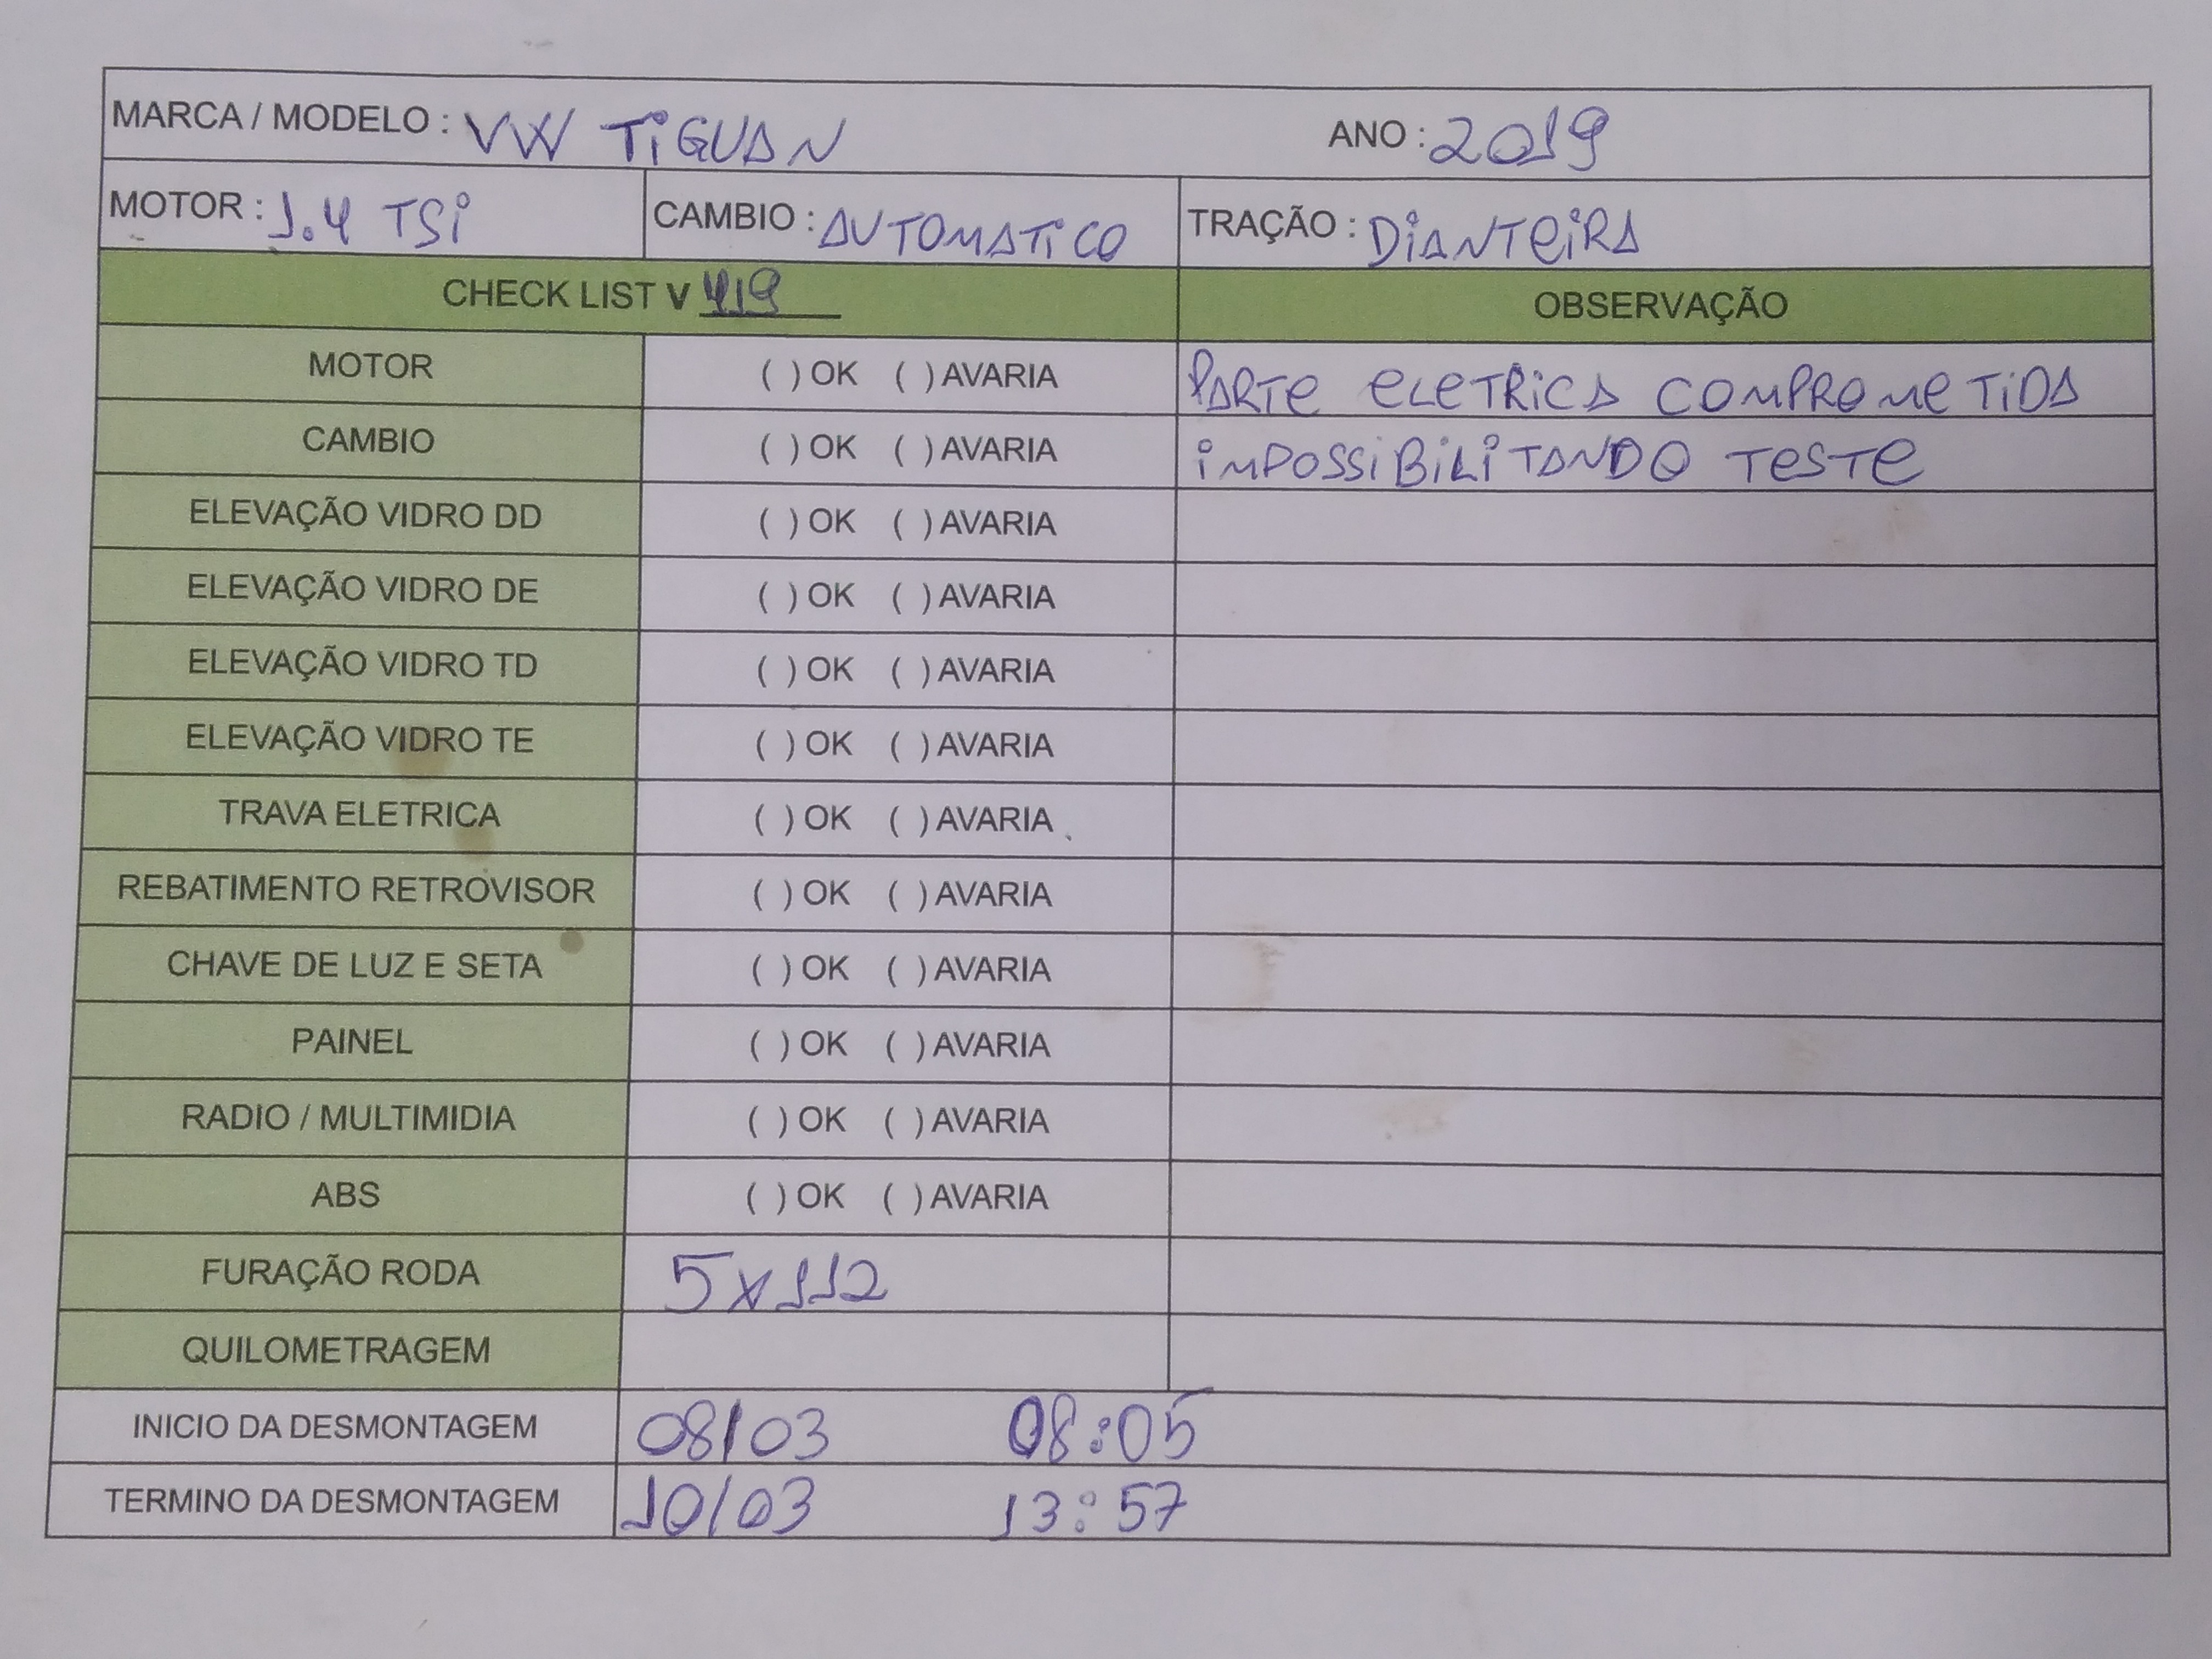 MARCA / MODELO : VW TIGUAN ANO : 2019
MOTOR : 1.4 TSI CAMBIO : AUTOMATICO TRAÇÃO : DIANTEIRA
CHECK LIST V 419 OBSERVAÇÃO
MOTOR ( ) OK ( ) AVARIA PARTE ELETRICA COMPROMETIDA
CAMBIO ( ) OK ( ) AVARIA IMPOSSIBILITANDO TESTE
ELEVAÇÃO VIDRO DD ( ) OK ( ) AVARIA
ELEVAÇÃO VIDRO DE ( ) OK ( ) AVARIA
ELEVAÇÃO VIDRO TD ( ) OK ( ) AVARIA
ELEVAÇÃO VIDRO TE ( ) OK ( ) AVARIA
TRAVA ELETRICA ( ) OK ( ) AVARIA
REBATIMENTO RETROVISOR ( ) OK ( ) AVARIA
CHAVE DE LUZ E SETA ( ) OK ( ) AVARIA
PAINEL ( ) OK ( ) AVARIA
RADIO / MULTIMIDIA ( ) OK ( ) AVARIA
ABS ( ) OK ( ) AVARIA
FURAÇÃO RODA 5x112
QUILOMETRAGEM
INICIO DA DESMONTAGEM 08/03 08:05
TERMINO DA DESMONTAGEM 10/03 13:57